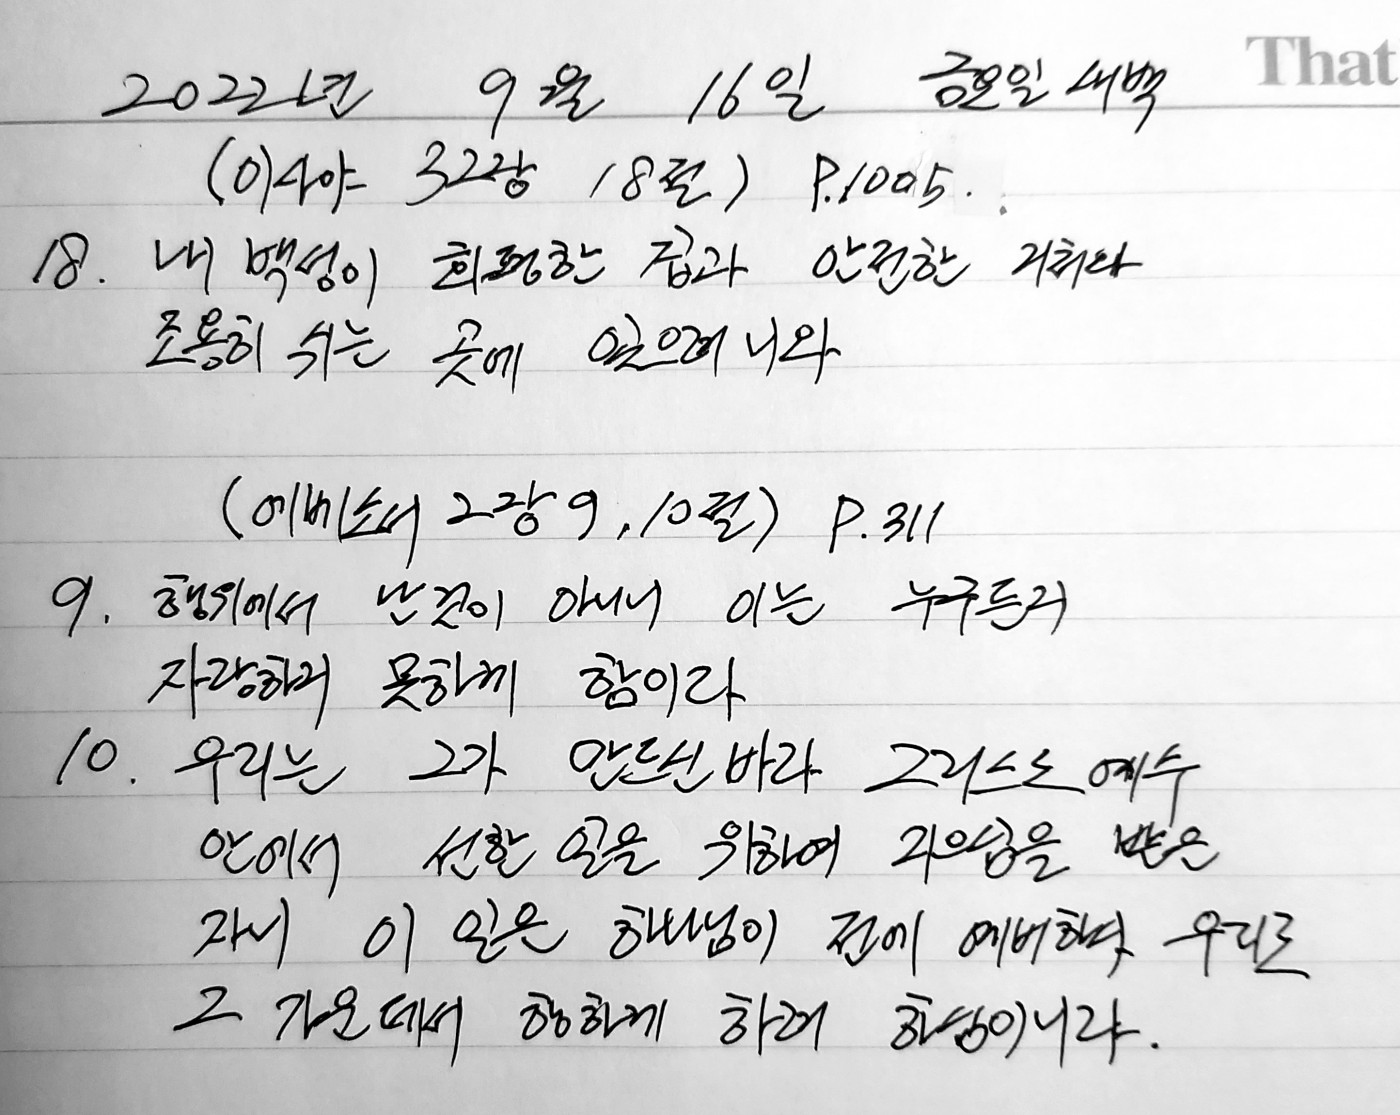 That
2022년 9월 16일 금요일 새벽
(이사야 32장 18절) P.1005.
18. 내 백성이 희평한 집과 안전한 거처와
조용히 쉬는 곳에 있으려니와
(에베소서 2장 9, 10절) P.311
9. 행위에서 난것이 아니니 이는 누구든지
자랑하지 못하게 함이라
10. 우리는 그가 만드신바라 그리스도 예수
안에서 선한 일을 위하여 지으심을 받은
자니 이 일은 하나님이 전에 예비하사 우리로
그 가운데서 행하게 하려 하심이니라.